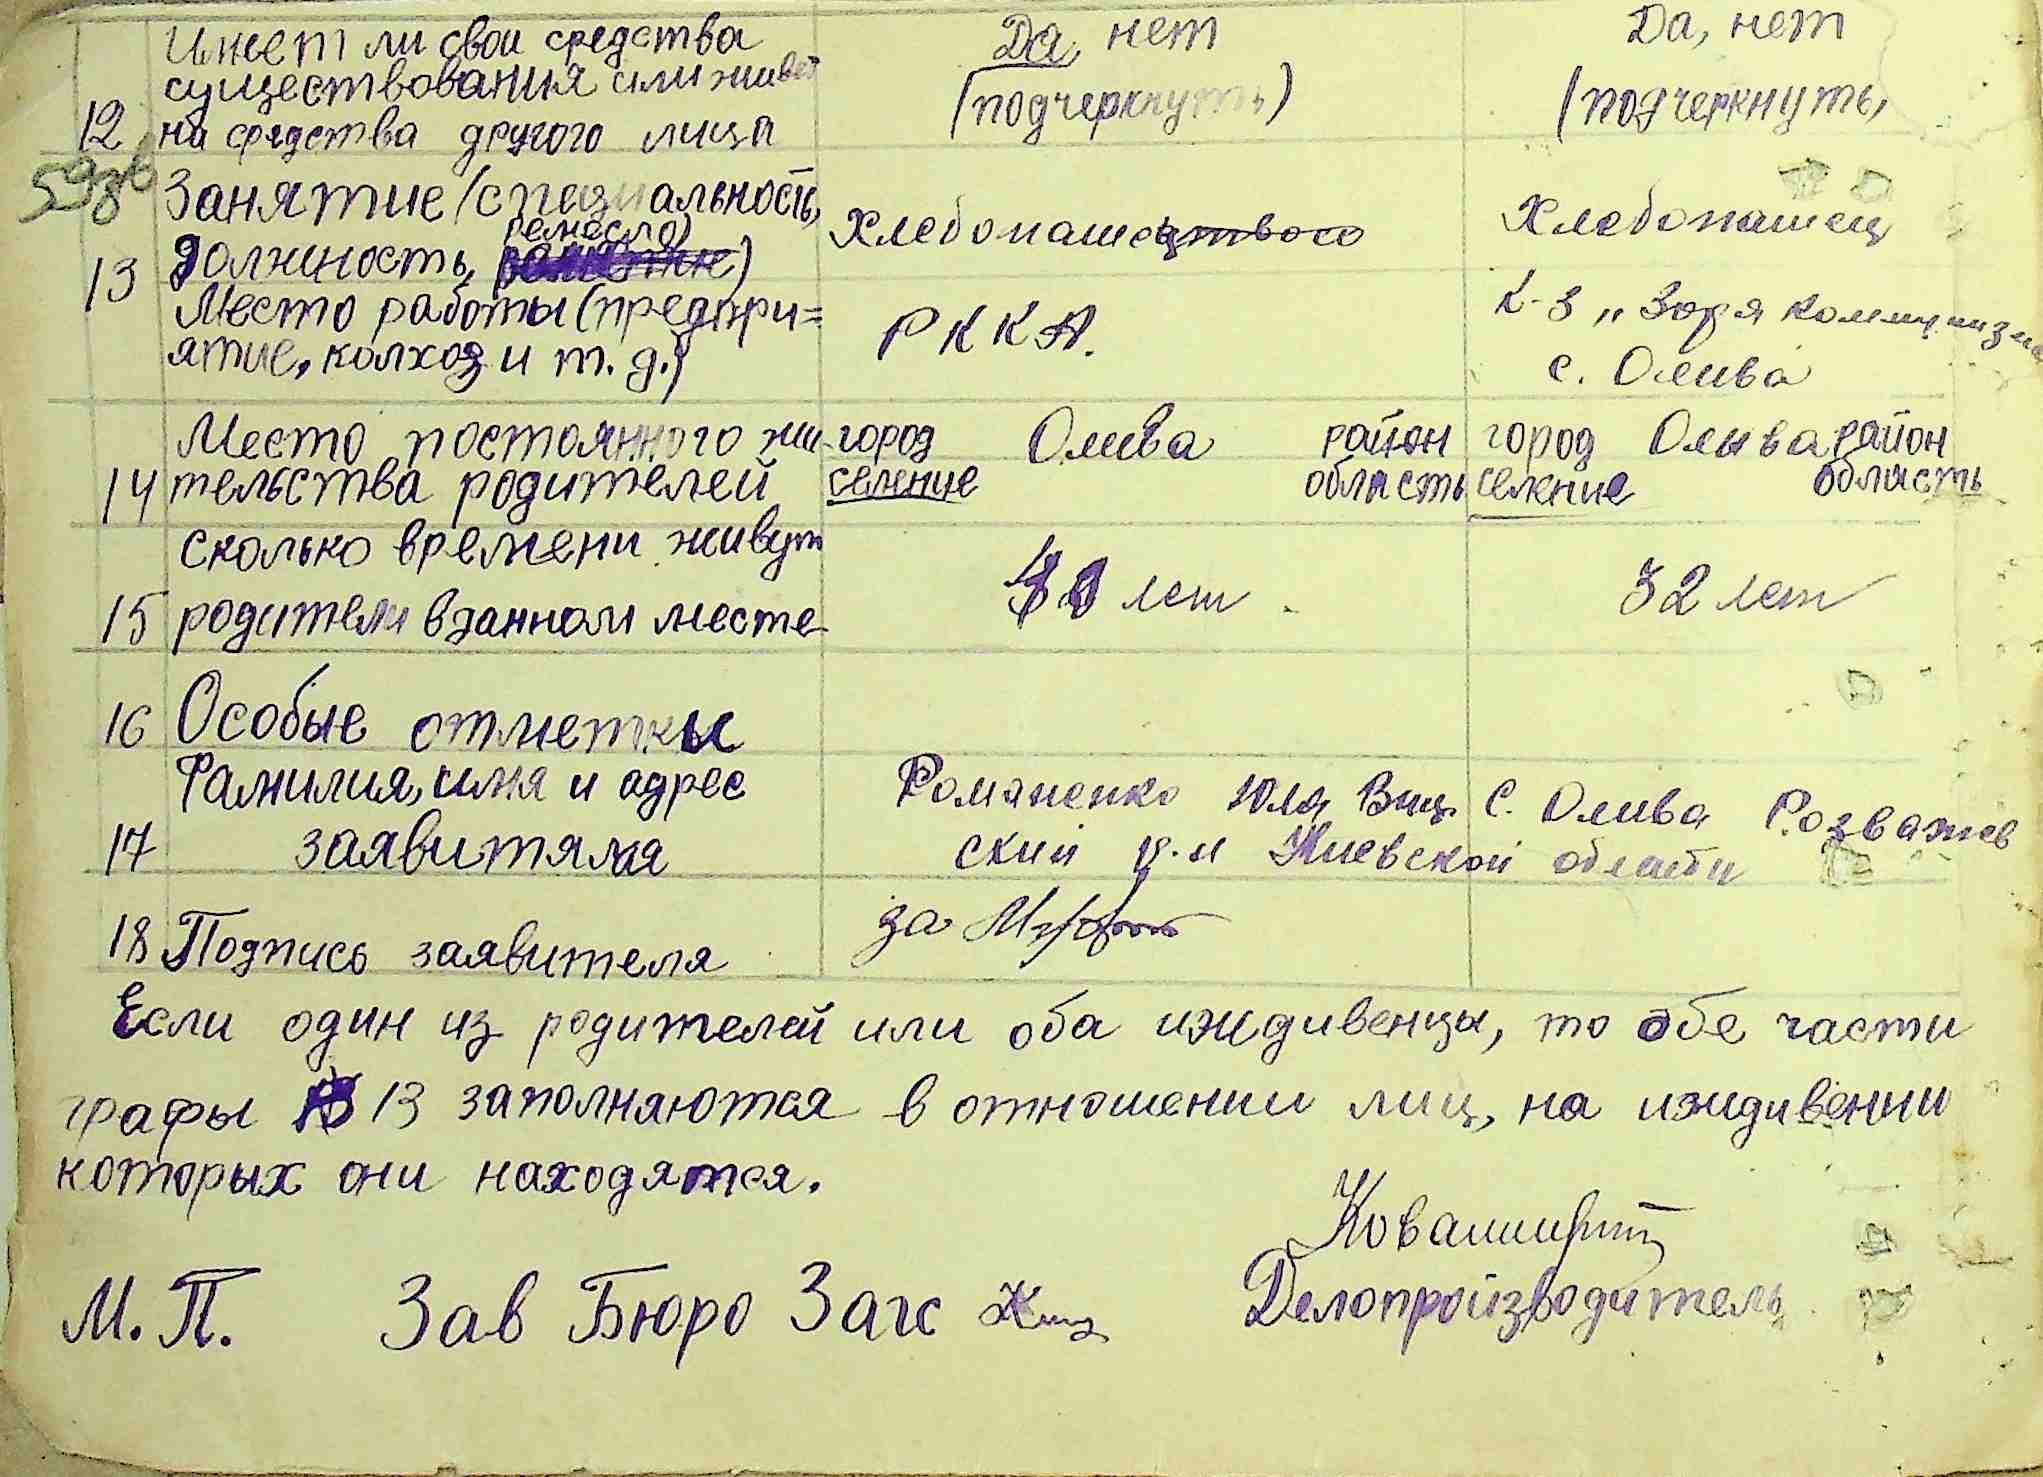 Имеет ли свои средства Да, нет Да, нет
существования или живет (подчеркнуть) (подчеркнуть)
12 на средства другого лица
Занятие (специальность,
ремесло)
13 должность, Хлебопашец Хлебопашец
Место работы (предпри= РККА. К-з „Зоря коммунизма
ятие, колхоз и т. д.) с. Олива
Место постоянного жи- город Олива район город Олыва район
14 тельства родителей селение область селение область
сколько времени живут
15 родители в данном месте лет 32 лет
16 Особые отметкы
Фамилия, имя и адрес Романенко Юля Виц. С. Олива Розважев
17 заявитяля ский р-н Киевской области
18 Подпись заявителя за
Если один из родителей или оба иждивенцы, то обе части
графы 13 заполняются в отношении лиц, на иждивении
которых они находятся.
М. П. Зав Бюро Загс Делопроизводитель